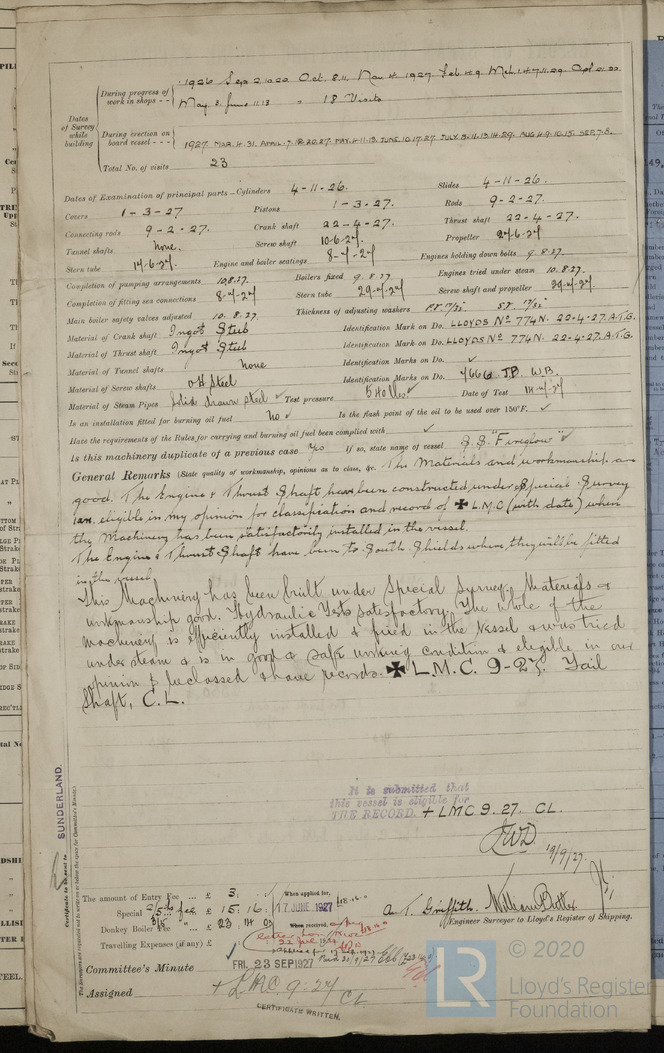 Dates of Survey while building
During progress of work in shops - - 1926 Sep 2.10.20 Oct. 8.11. Nov 4. 1927 Feb. 1.9 Mch. 1.4.7.11.29. Apl 21.22.
May 3. June 11.13 = 18 Visits
During erection on board vessel - - - 1927. MAR. 4. 31. APRIL. 7. 12. 20. 27. MAY. 4. 11. 13. JUNE. 10. 17. 27. JULY 8. 11. 13. 14. 29. AUG 4. 9. 10. 15. SEP. 7. 8.
Total No. of visits 23
Dates of Examination of principal parts—Cylinders 4-11-26. Slides 4-11-26.
Covers 1-3-27 Pistons 1-3-27. Rods 9-2-27.
Connecting rods 9-2-27. Crank shaft 22-4-27. Thrust shaft 22-4-27.
Tunnel shafts None. Screw shaft 10-6-27. Propeller 24-6-27
Stern tube 14-6-27. Engine and boiler seatings 8-4-27 Engines holding down bolts 9.8.27.
Completion of pumping arrangements 10.8.27. Boilers fixed 9.8.27. Engines tried under steam 10.8.27.
Completion of fitting sea connections 8-4-27 Stern tube 29-4-27 Screw shaft and propeller 29-4-27.
Main boiler safety valves adjusted 10.8.27. Thickness of adjusting washers
Material of Crank shaft Ingot Steel Identification Mark on Do. LLOYDS No 774N. 22-4-27. A.T.G.
Material of Thrust shaft Ingot Steel Identification Mark on Do. LLOYDS No 774N. 22-4-27. A.T.G.
Material of Tunnel shafts None Identification Marks on Do. ✓
Material of Screw shafts Steel Identification Marks on Do. 7666 J.P. W.B.
Material of Steam Pipes Solid drawn steel ✓ Test pressure Date of Test
Is an installation fitted for burning oil fuel No ✓ Is the flash point of the oil to be used over 150°F. ✓
Have the requirements of the Rules for carrying and burning oil fuel been complied with ✓
Is this machinery duplicate of a previous case Yes If so, state name of vessel S.S. "Fireglow" ✓
General Remarks (State quality of workmanship, opinions as to class, &c. The Materials and workmanship are
good. The Engine & Thrust Shaft have been constructed under Special Survey
& are eligible in my opinion for classification and record of ✠ L.M.C (with date) when
the Machinery has been satisfactorily installed in the vessel.
The Engine & Thrust Shaft have been to South Shields where they will be fitted
in the vessel
This Machinery has been built under Special Survey. Materials &
workmanship good. Hydraulic Tests satisfactory. The whole of the
machinery is efficiently installed & fixed in the Vessel & was tried
under steam & is in good & safe working condition & eligible in our
opinion to be classed & have records. ✠ L.M.C. 9-27. Tail
Shaft, C.L.
It is submitted that
this vessel is eligible for
THE RECORD. + LMC 9.27. CL.
19/9/27.
SUNDERLAND.
Certificate to be sent to
The amount of Entry Fee ... £ 3. When applied for,
Special £ 15.16. 17 JUNE 1927
Donkey Boiler Fee ... £ 23.14 When received,
Travelling Expenses (if any) £
A. T. Griffith. William Butler
Engineer Surveyor to Lloyd's Register of Shipping.
Committee's Minute FRI. 23 SEP 1927
Assigned + LMC 9.27 CL
CERTIFICATE WRITTEN.
LR
© 2020
Lloyd's Register
Foundation